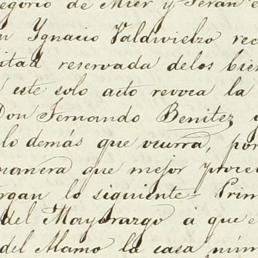 egorio de Mier y Terán e
n Ygnacio Valdivielzo rec
itad reservada delos bien
este solo acto revoca la
Don Fernando Benitez y
lo demás que ocurra, por
manera que mejor proced
rgan lo siguiente= Prim
del Mayorazgo a que e
del Alamo la casa núm